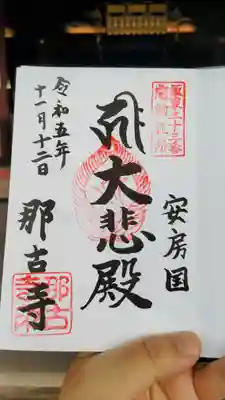 坂東三十三番
結願札所
安房国
大悲殿
令和五年
十一月十二日
那古寺